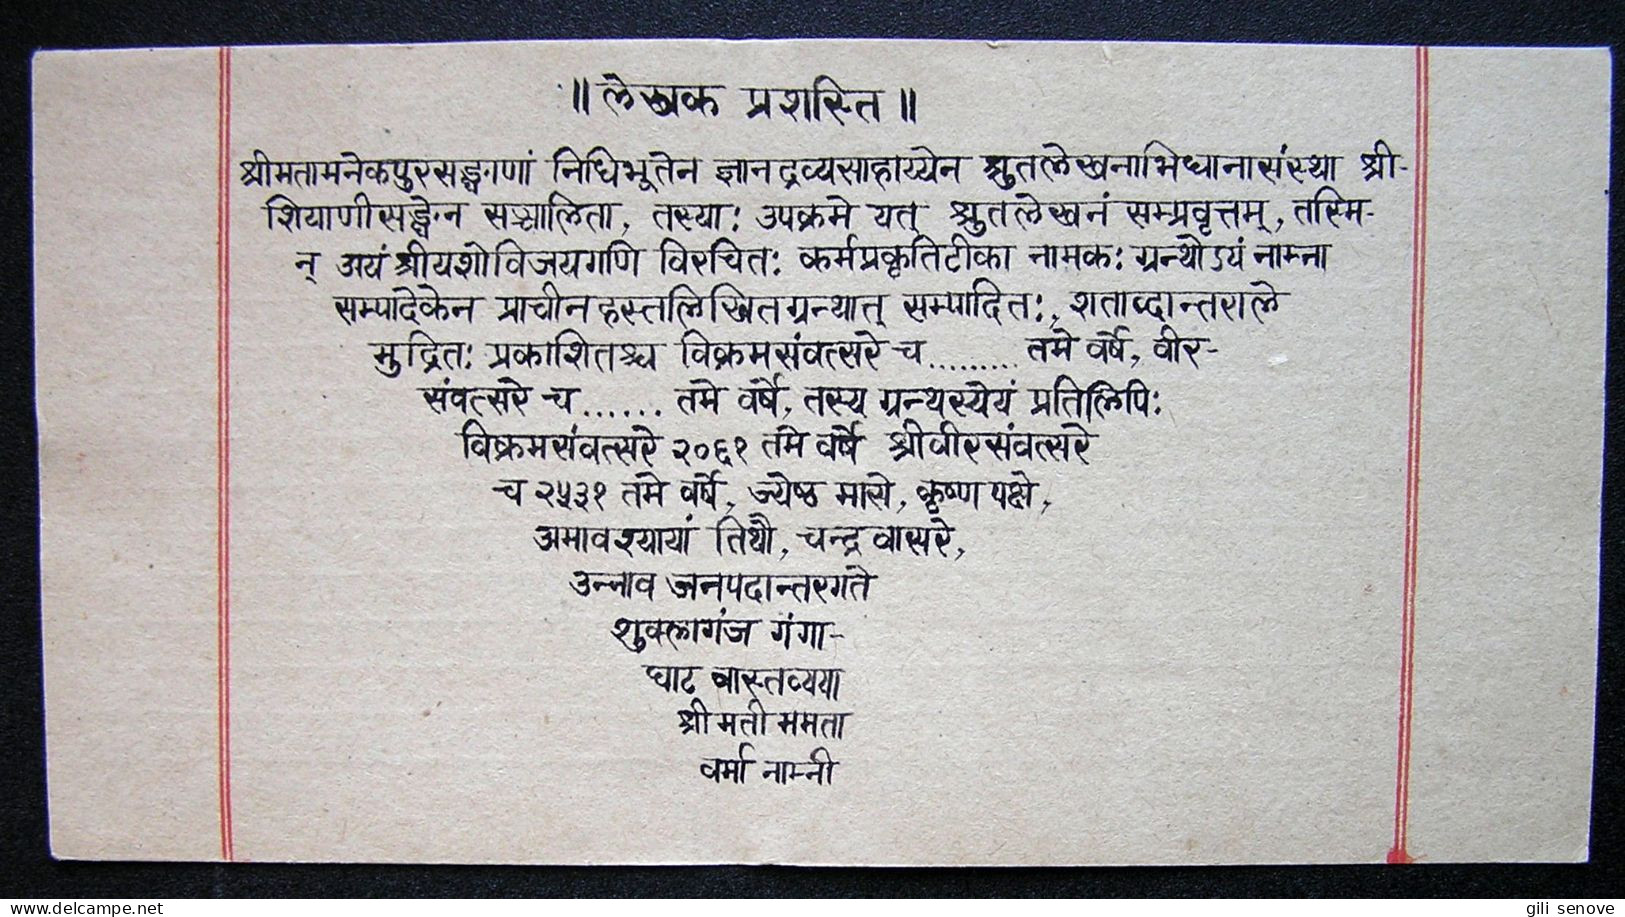 ॥ लेखक प्रशस्ति ॥
श्रीमतामनेकपुरसङ्घाणां निधिभूतेन ज्ञानद्रव्यसाहाय्येन श्रुतलेखनाभिधानासंस्था श्री-
शियाणीसङ्घेन सञ्चालिता, तस्याः उपक्रमे यत् श्रुतलेखनं सम्प्रवृत्तम्, तस्मि-
न् अयं श्रीयशोविजयगणि विरचितः कर्मप्रकृतिटीका नामकः ग्रन्थोऽयं नाम्ना
सम्पादेकेन प्राचीनहस्तलिखितग्रन्थात् सम्पादितः, शताव्दान्तराले
मुद्रितः प्रकाशितश्च विक्रमसंवत्सरे च ......... तमे वर्षे, वीर-
संवत्सरे च ...... तमे वर्षे, तस्य ग्रन्थस्येयं प्रतिलिपिः
विक्रमसंवत्सरे २०६१ तमे वर्षे श्रीवीरसंवत्सरे
च २५३१ तमे वर्षे, ज्येष्ठ मासे, कृष्ण पक्षे,
अमावश्यायां तिथौ, चन्द्र वासरे,
उन्नाव जनपदान्तरगते
शुक्लागंज गंगा-
घाट वास्तव्यया
श्रीमती ममता
वर्मा नाम्नी
www.delcampe.net
gili senove